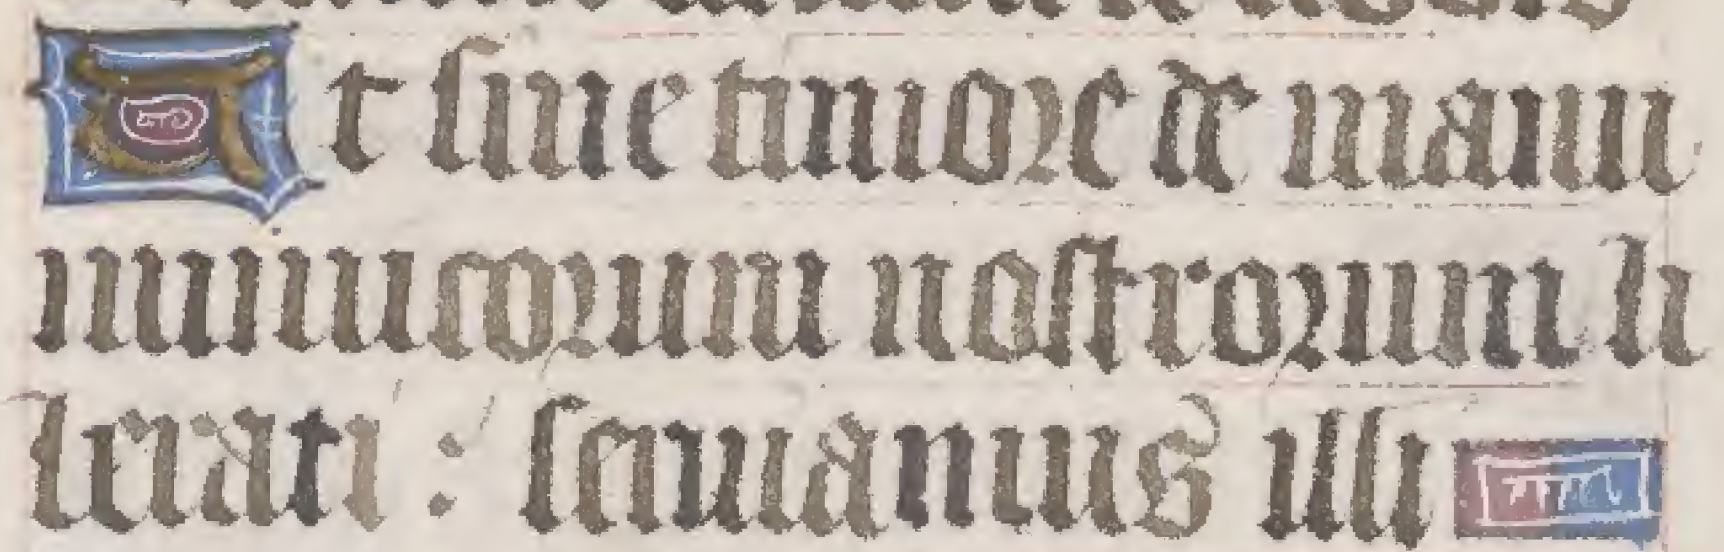 Ut sine timore de manu
inimicorum nostrorum li
berati : seruiamus illi